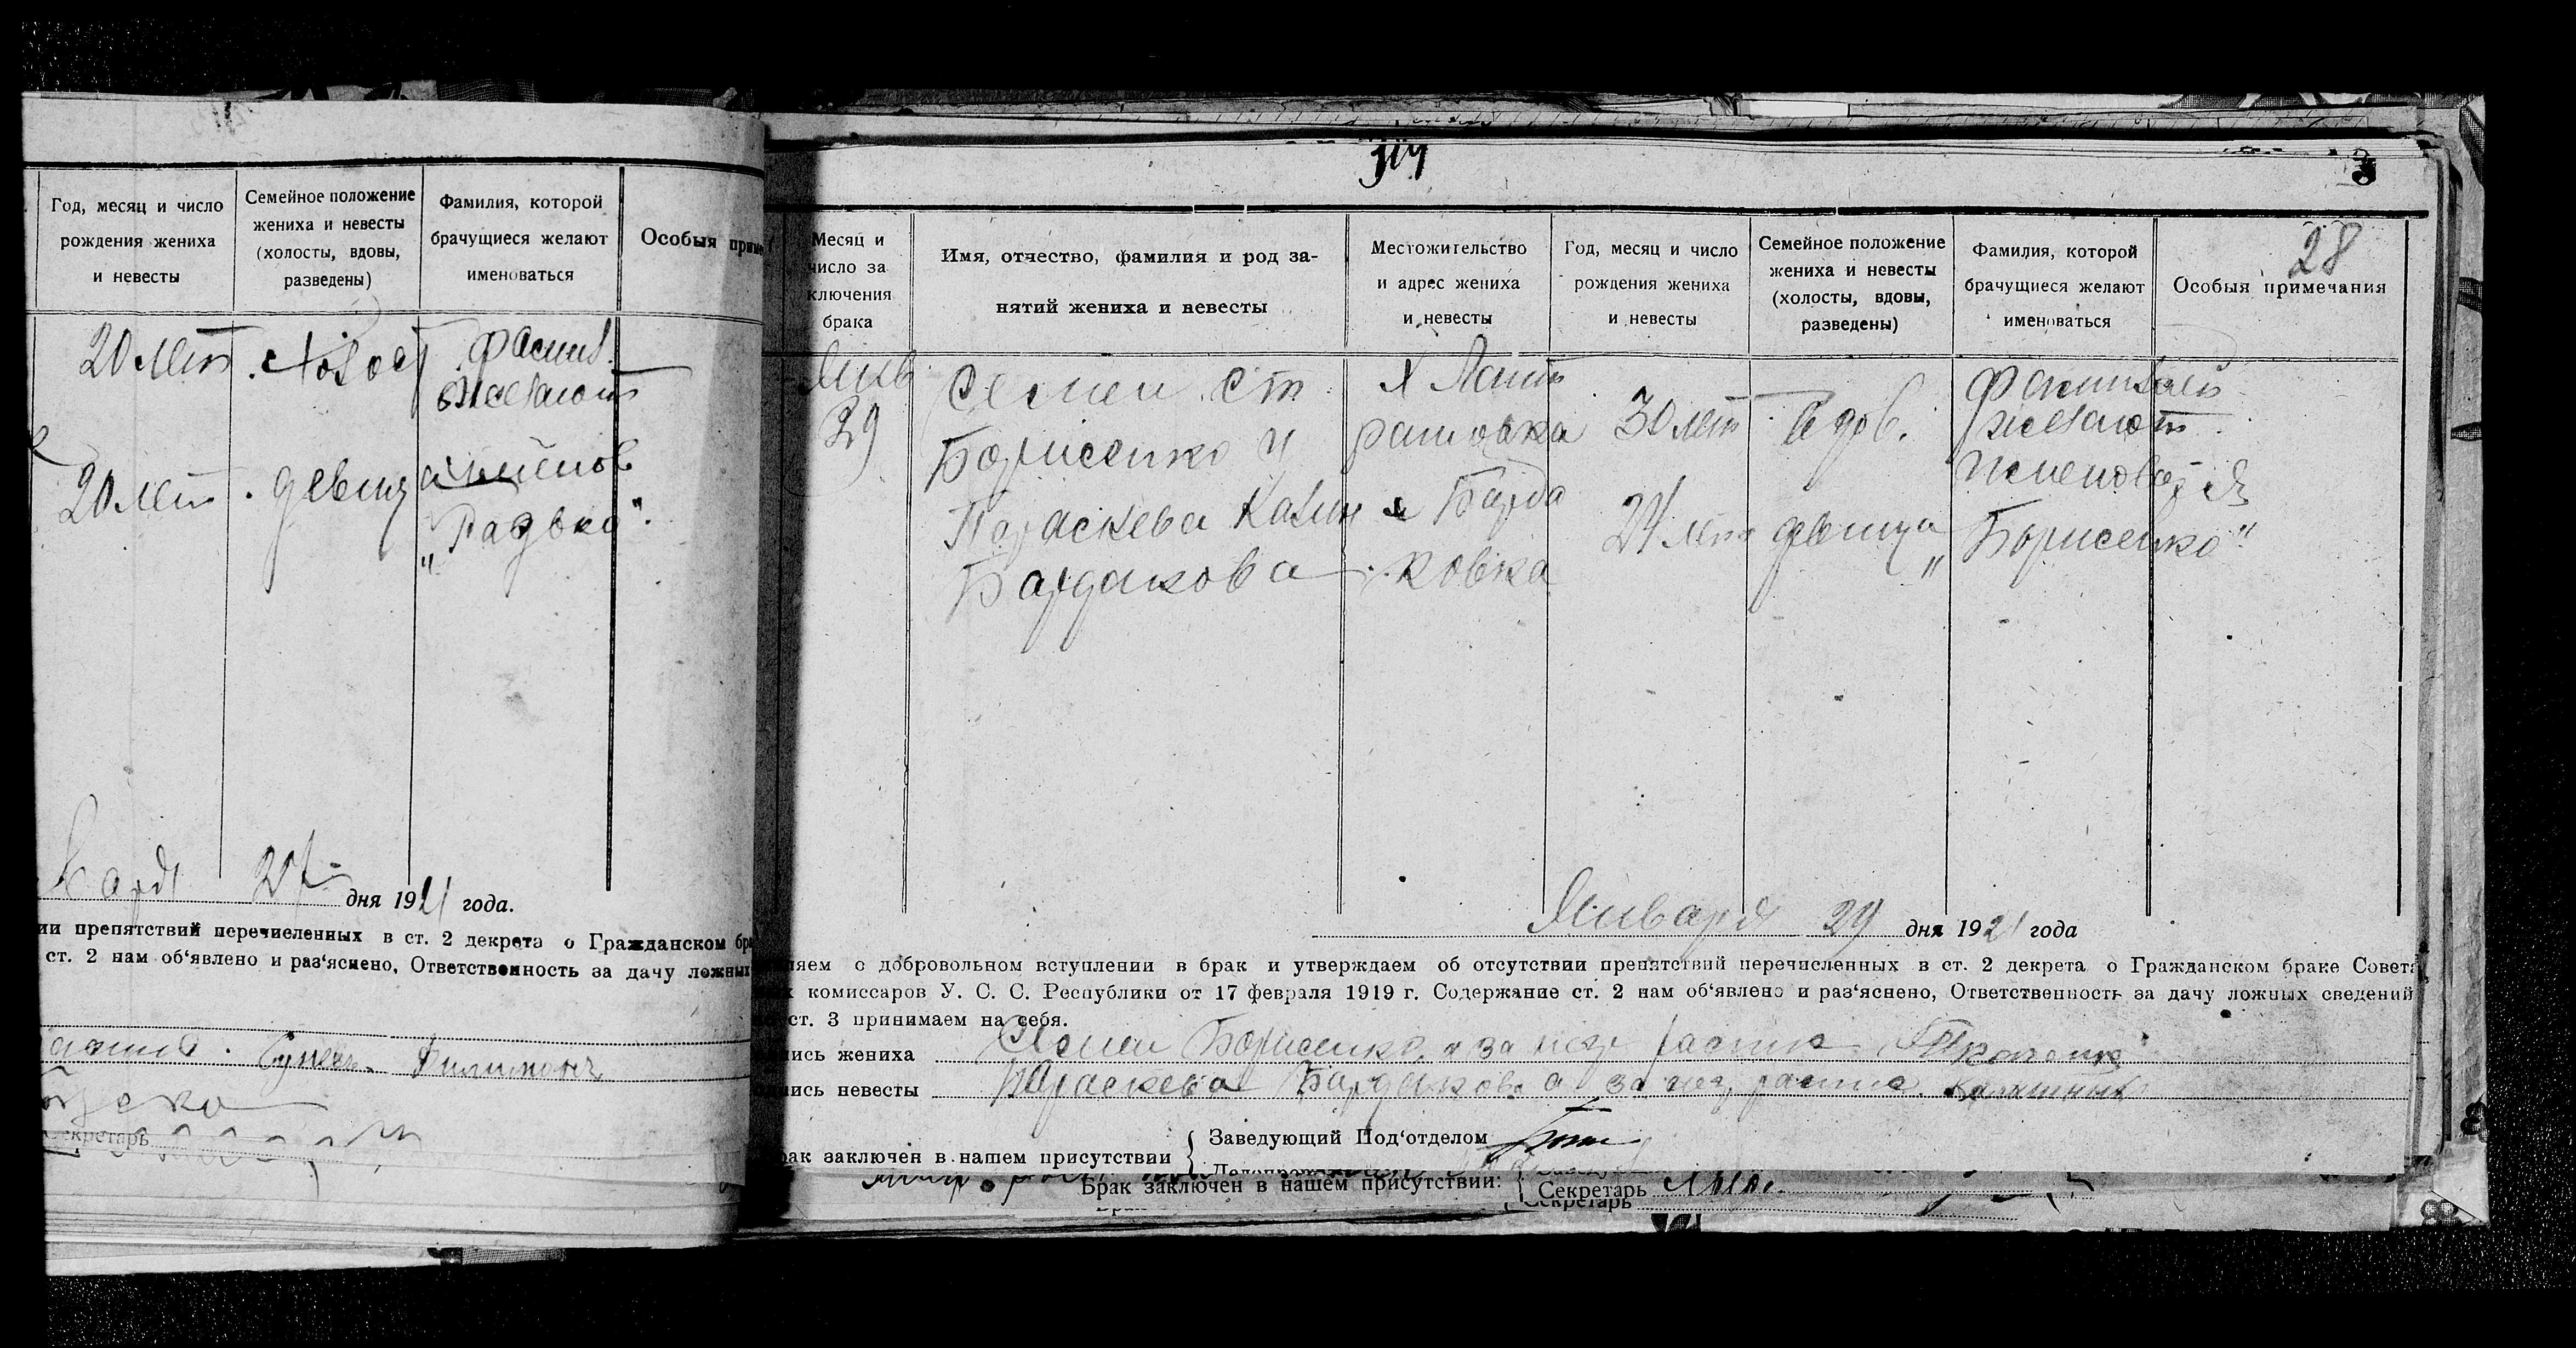 Год, месяц и число
рождения жениха
и невесты
Семейное положение
жениха и невесты
(холосты, вдовы,
разведены)
Фамилия, которой
брачущиеся желают
именоваться
Особыя приме
20 лет
холост
фамил.
желают
20 лет
девица
именов
"Радько".
27
дня 1921 года.
ии препятствий перечиеленных в ст. 2 декрета о Гражданском бра
ст. 2 нам об'явлено и раз'яснено, Ответственность за дачу ложных
Филимон
секретарь
3
28
Месяц и
число за
ключения
брака
Имя, отчество, фамилия и род за-
нятий жениха и невесты
Местожительство
и адрес жениха
и невесты
Год, месяц и число
рождения жениха
и невесты
Семейное положение
жениха и невесты
(холосты, вдовы,
разведены)
Фамилия, которой
брачущиеся желают
именоваться
Особыя примечания
Янв
29
Семен Ст
Борисенко и
Параскева Калин
Бардакова
х
рашовка
х Барда
ковка
30 лет
24 лет
вдов.
девица
Фамилией
желают
именоваться
"Борисенко".
Января 29 дня 1921 года
ляем о добровольном вступлении в брак и утверждаем об отсутствии препятствий перечисленных в ст. 2 декрета о Гражданском браке Совета
х комиссаров У. С. С. Республики от 17 февраля 1919 г. Содержание ст. 2 нам об'явлено и раз'яснено, Ответственность за дачу ложных сведений
ст. 3 принимаем на себя.
пись жениха Семен Борисенко, а за негр распис Ткаченко
пись невесты Параскева Бардакова а за негр распис Калашник
рак заключен в нашем присутствии
Заведующий Под'отделом
Брак заключен в нашем присутствии:
Секретарь
Секретарь